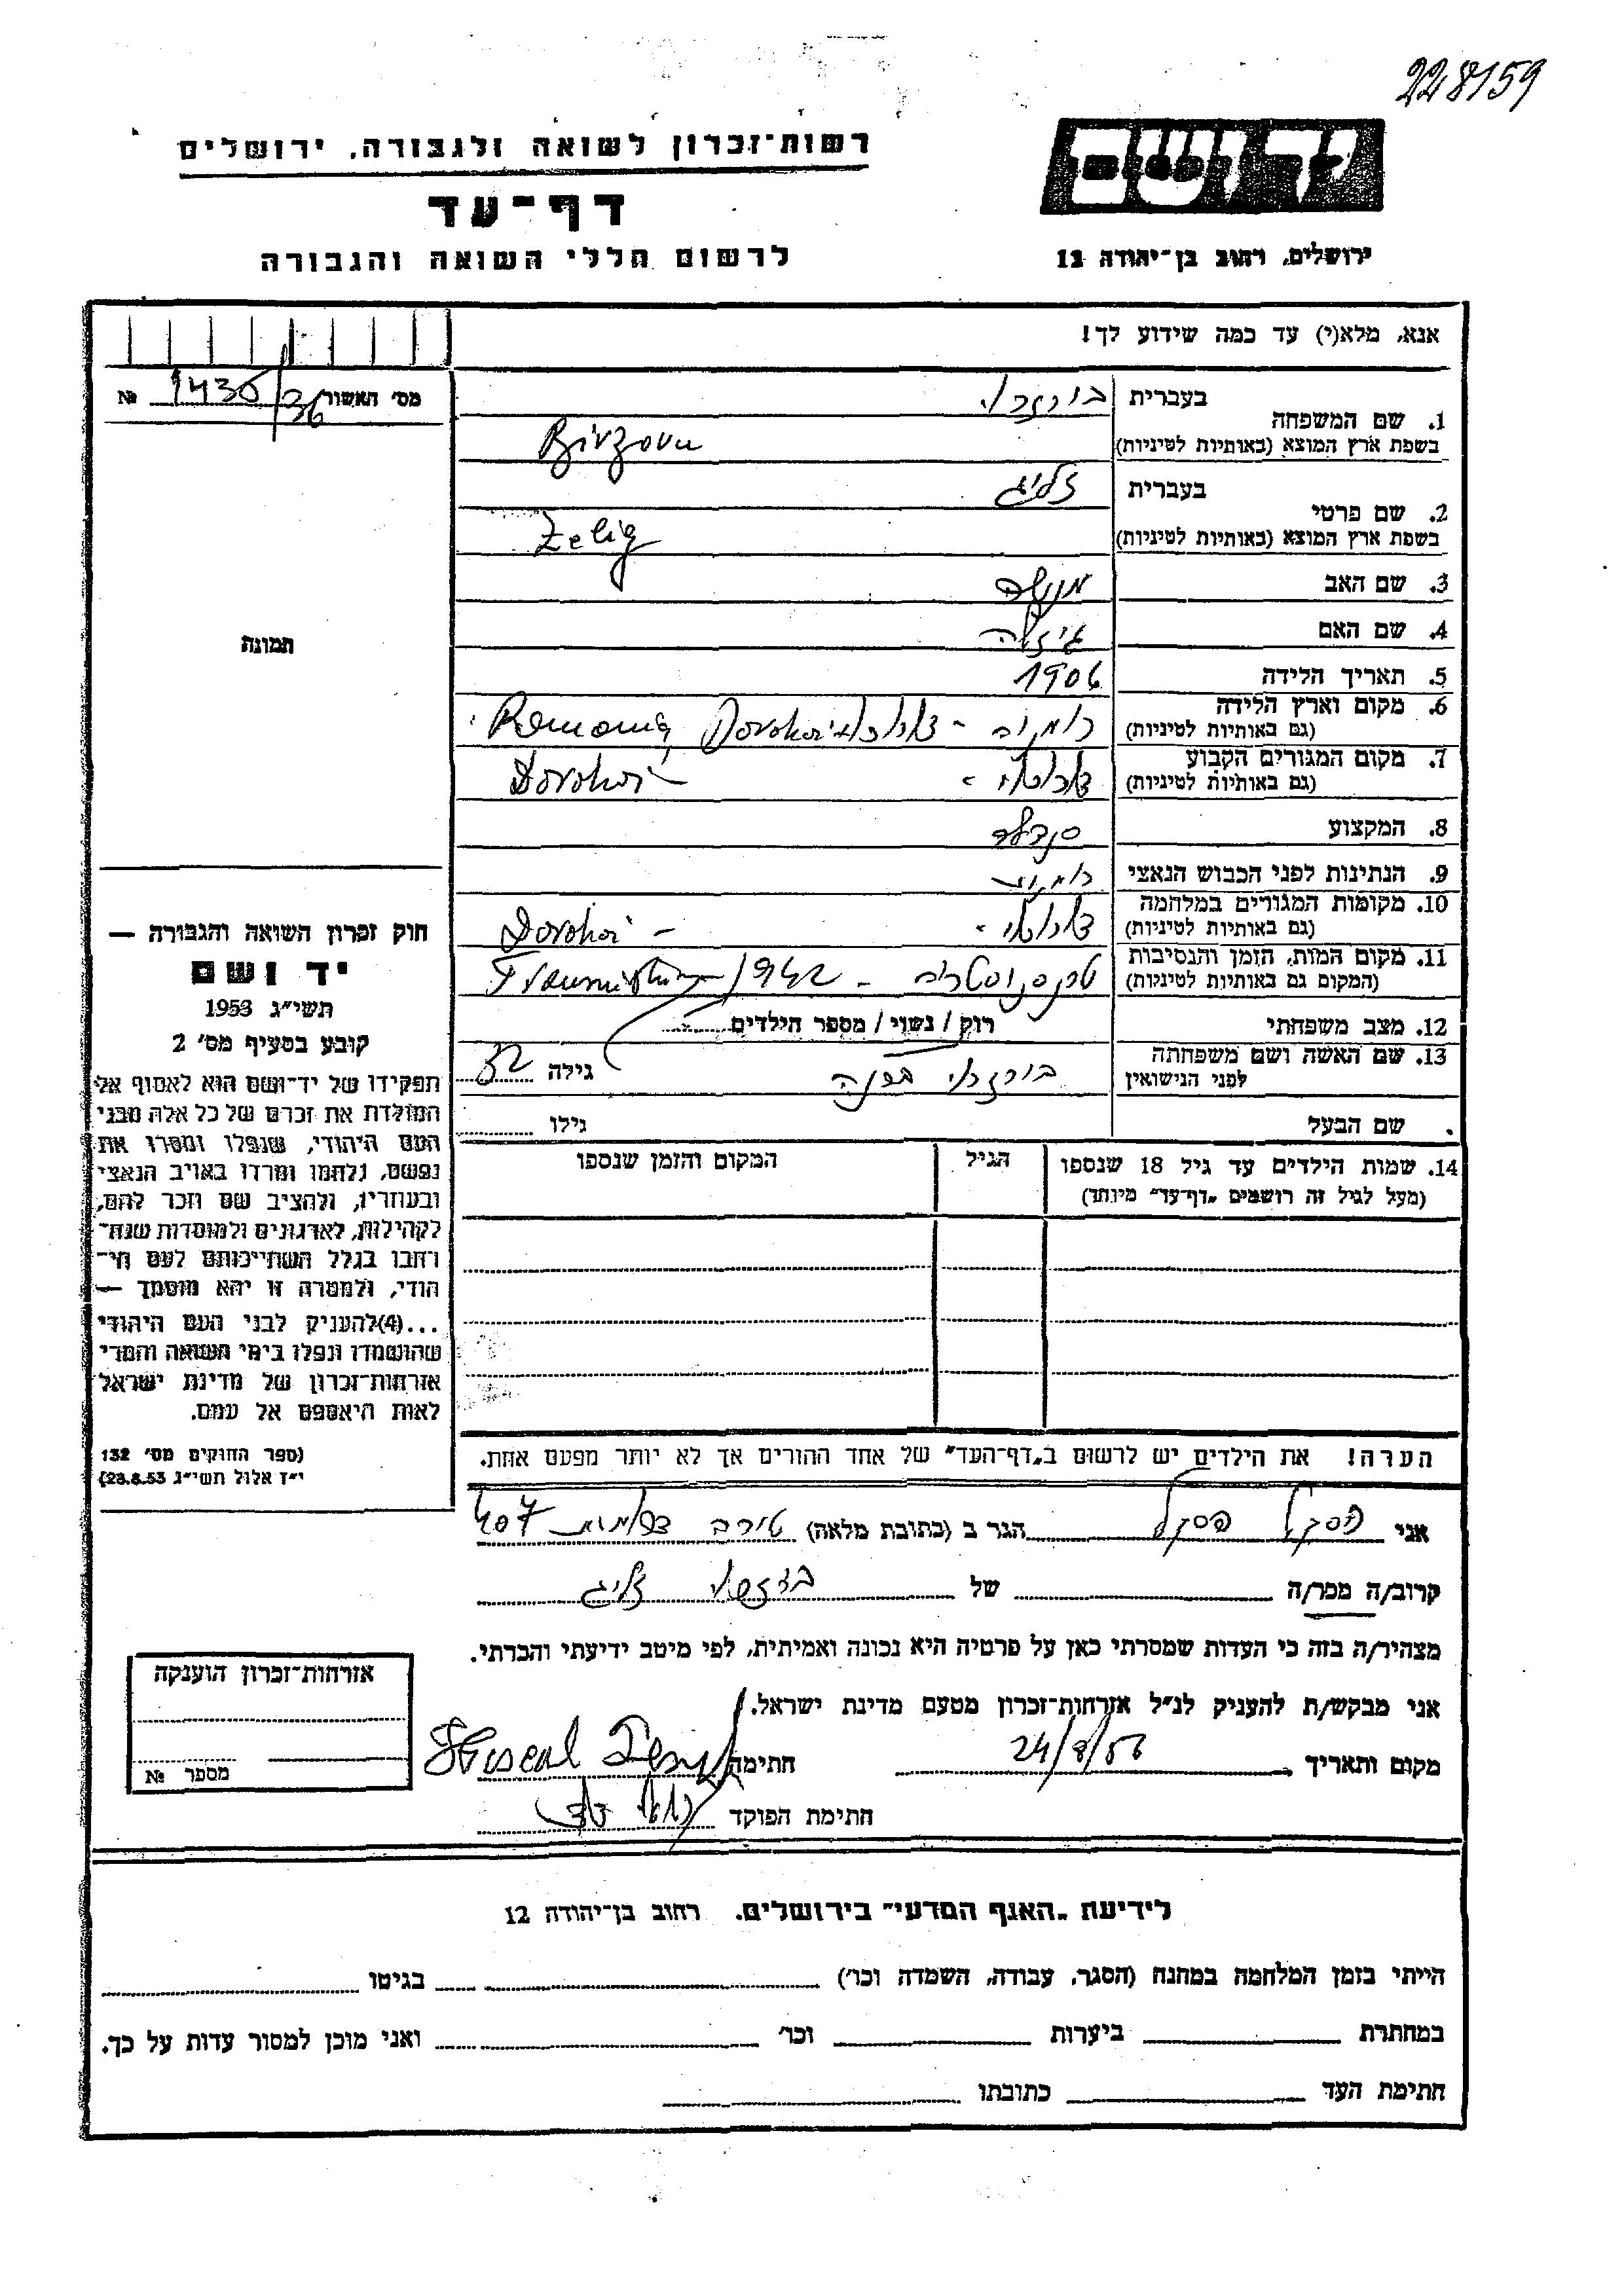 228159
יד ושם
רשות־זכרון לשואה ולגבורה, ירושלים
דף־עד
לרשום חללי השואה והגבורה
ירושלים, רחוב בן־יהודה 12
אנא, מלא(י) עד כמה שידוע לך!
מס׳ האשור 1430/36 №
1. שם המשפחה
בעברית
בשפת ארץ המוצא (באותיות לטיניות) Birzovu
2. שם פרטי
בעברית זליג
בשפת ארץ המוצא (באותיות לטיניות) Zelig
3. שם האב מנשה
4. שם האם גיזלה
5. תאריך הלידה 1906
6. מקום וארץ הלידה
(גם באותיות לטיניות) Dorohoi
7. מקום המגורים הקבוע
(גם באותיות לטיניות) Dorohoi –
8. המקצוע סנדלר
9. הנתינות לפני הכבוש הנאצי
10. מקומות המגורים במלחמה
(גם באותיות לטיניות) Dorohoi –
11. מקום המות, הזמן והנסיבות
(המקום גם באותיות לטיניות) 1942
12. מצב משפחתי רוק / נשוי / מספר הילדים
13. שם האשה ושם משפחתה
לפני הנישואין
גילה
שם הבעל גילו
14. שמות הילדים עד גיל 18 שנספו הגיל המקום והזמן שנספו
(מעל לגיל זה רושמים „דף־עד” מיוחד)
הערה! את הילדים יש לרשום ב„דף־העד” של אחד ההורים אך לא יותר מפעם אחת.
תמונה
חוק זכרון השואה והגבורה —
יד ושם
תשי״ג 1953
קובע בסעיף מס׳ 2
תפקידו של יד־ושם הוא לאסוף אל
המולדת את זכרם של כל אלה מבני
העם היהודי, שנפלו ומסרו את
נפשם, נלחמו ומרדו באויב הנאצי
ובעוזריו, ולהציב שם וזכר להם,
לקהילות, לארגונים ולמוסדות שנח־
רבו בגלל השתייכותם לעם הי־
הודי, ולמטרה זו יהא מוסמך —
...(4)להעניק לבני העם היהודי
שהושמדו ונפלו בימי השואה והמרי
אזרחות־זכרון של מדינת ישראל
לאות היאספם אל עמם.
(ספר החוקים מס׳ 132
י״ז אלול תשי״ג 28.8.53)
אני הסקל הגר ב (כתובת מלאה) 407
קרוב/ה מכר/ה של זליג
מצהיר/ה בזה כי העדות שמסרתי כאן על פרטיה היא נכונה ואמיתית, לפי מיטב ידיעתי והכרתי.
אני מבקש/ת להעניק לנ״ל אזרחות־זכרון מטעם מדינת ישראל.
מקום ותאריך 24/8/56 חתימה
חתימת הפוקד
אזרחות־זכרון הוענקה
מספר №
לידיעת „האגף המדעי” בירושלים. רחוב בן־יהודה 12
הייתי בזמן המלחמה במחנה (הסגר, עבודה, השמדה וכו׳) בגיטו
במחתרת ביערות וכו׳ ואני מוכן למסור עדות על כך.
חתימת העד כתובתו